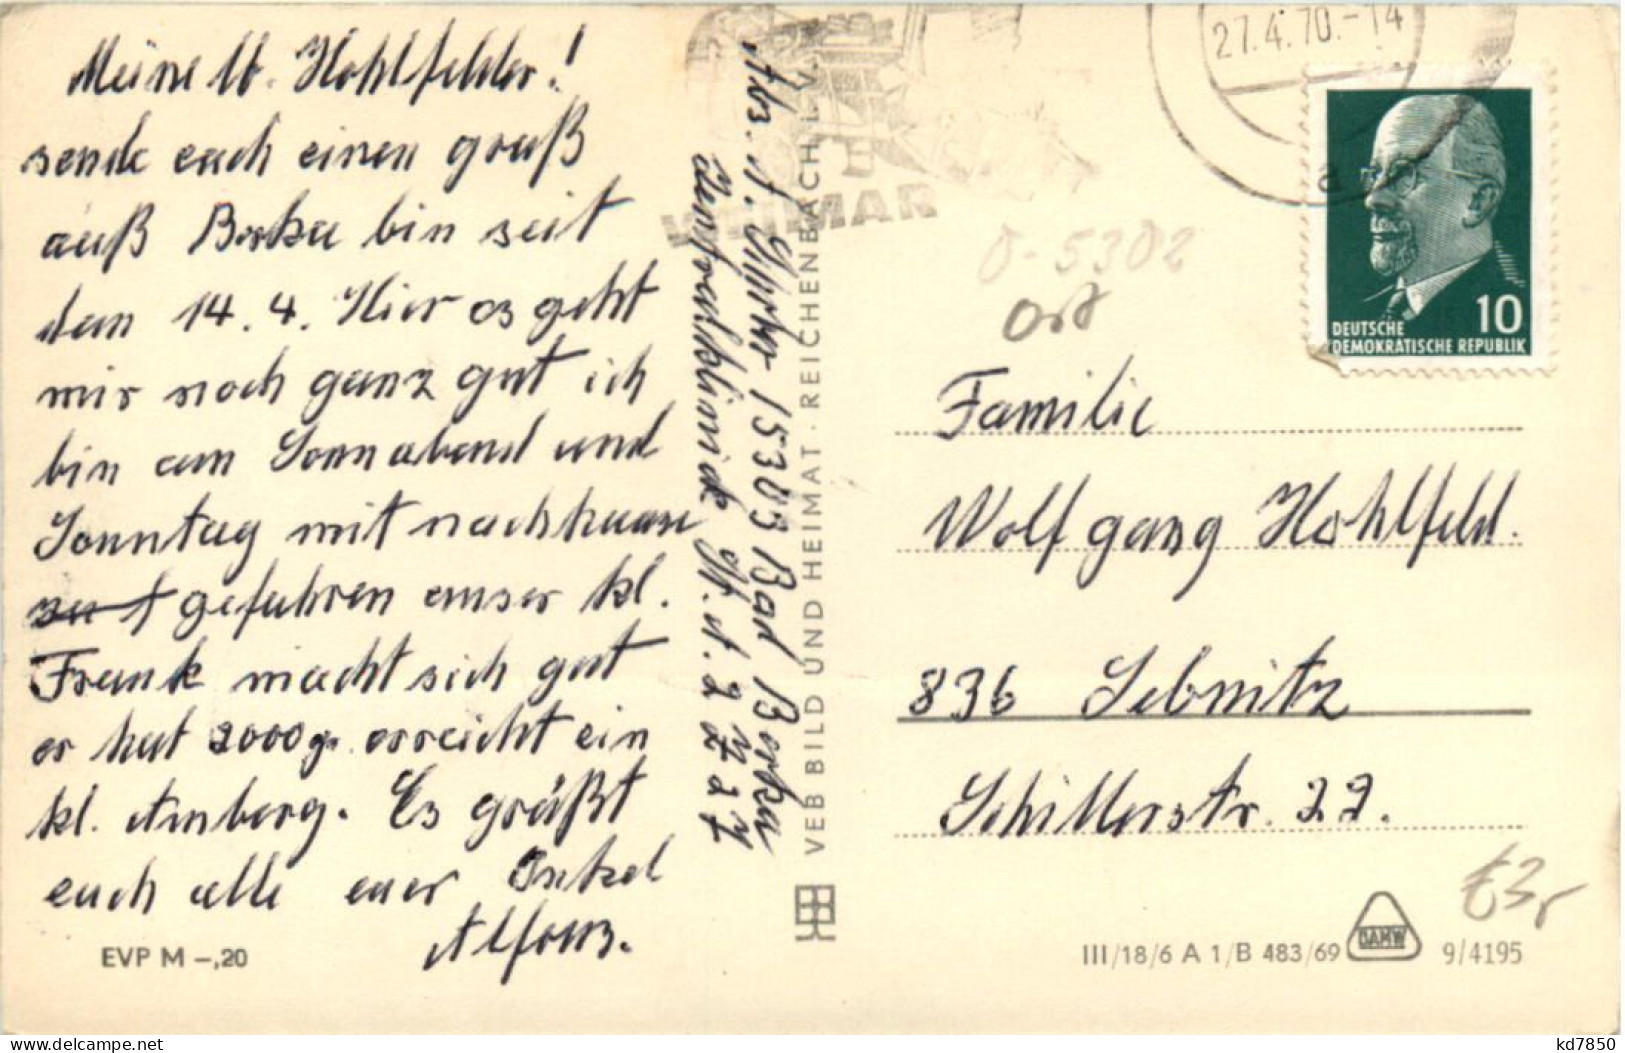 Meine lb. Hohlfelder!
sende euch einen gruß
auß Berka bin seit
den 14.4. Hier es geht
mir noch ganz gut ich
bin am Sonnabend und
Sonntag mit nachhause
gefahren unser kl.
Frank macht sich gut
er hat 2000 gr. erreicht ein
kl. Amberg. Es grüßt
euch alle euer Onkel
Alfons.
EVP M –,20
Abs. A. 153 03 Bad Berka
Zentralklinick St. A. 2 Z 27
VEB BILD UND HEIMAT · REICHENBACH I. V.
WEIMAR
27.4.70.-14
a
10
DEUTSCHE
DEMOKRATISCHE REPUBLIK
O-5302
Ort
Familie
Wolfgang Hohlfeld.
836 Sebnitz
Schillerstr. 22.
III/18/6 A 1/B 483/69
DAMW
9/4195
kd7850